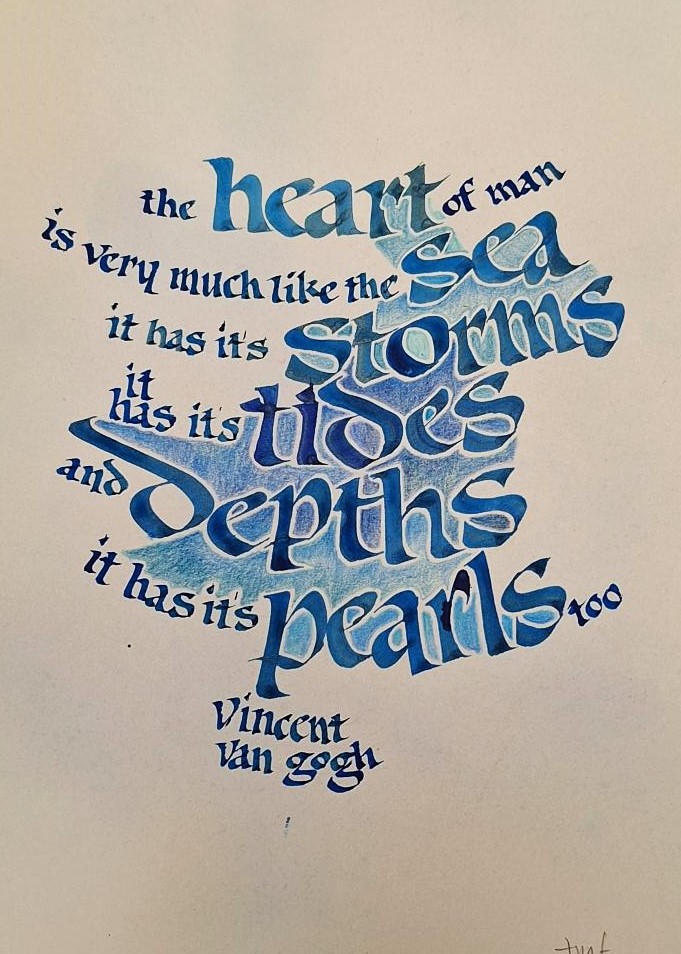 the heart of man
is very much like the sea
it has it's storms
it has it's tides
and depths
it has it's pearls too
Vincent
van gogh